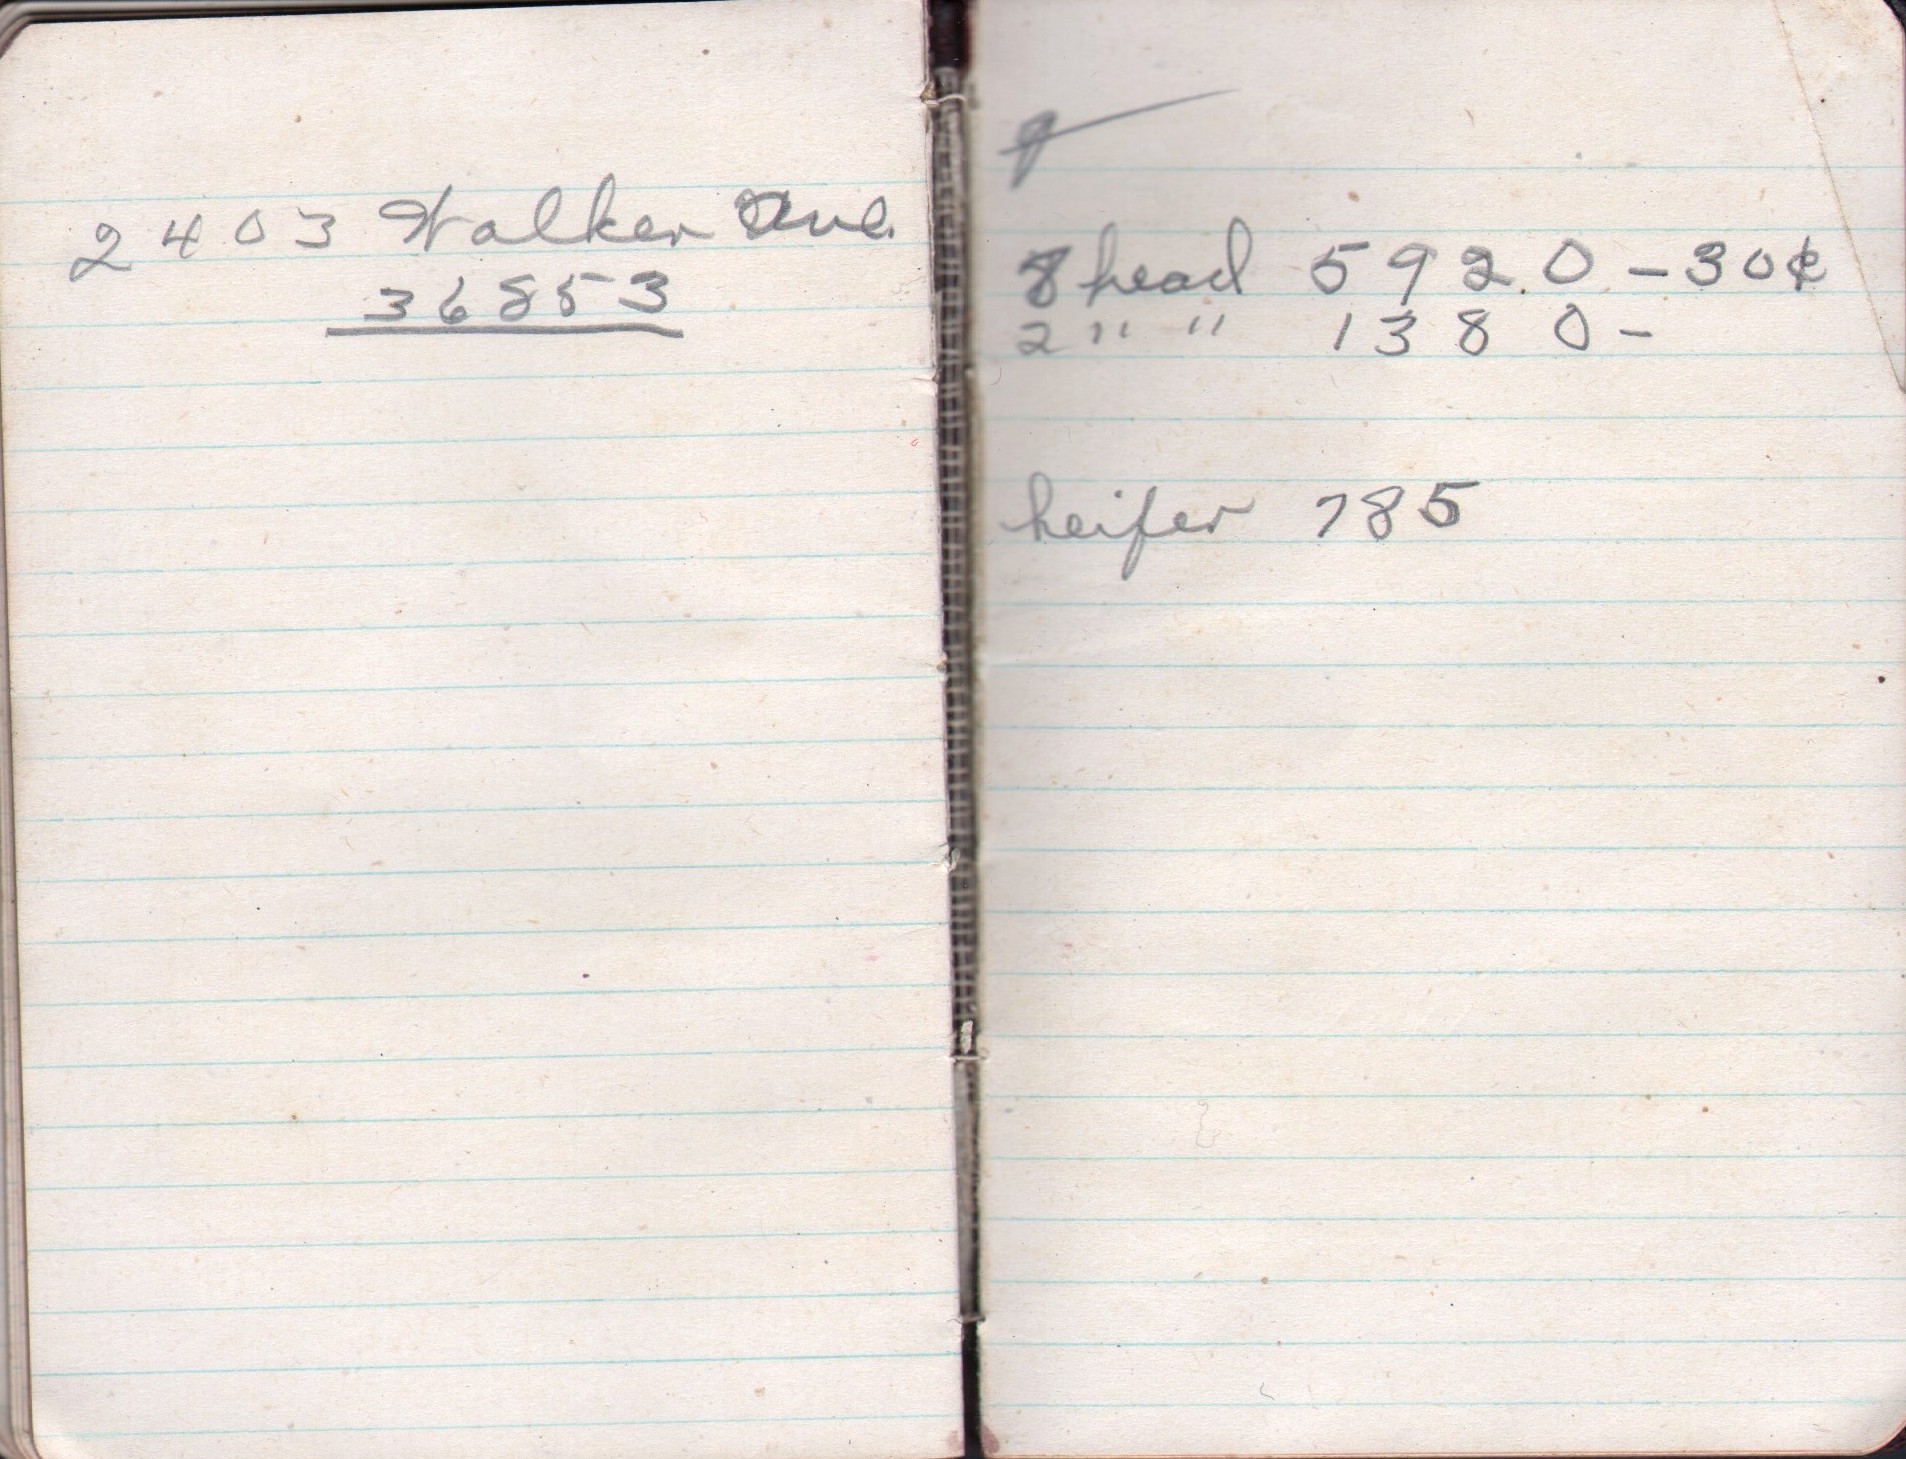 2403 Walker Ave.
36853
8 head 5920 - 30¢
2 " " 1380 -
heifer 785